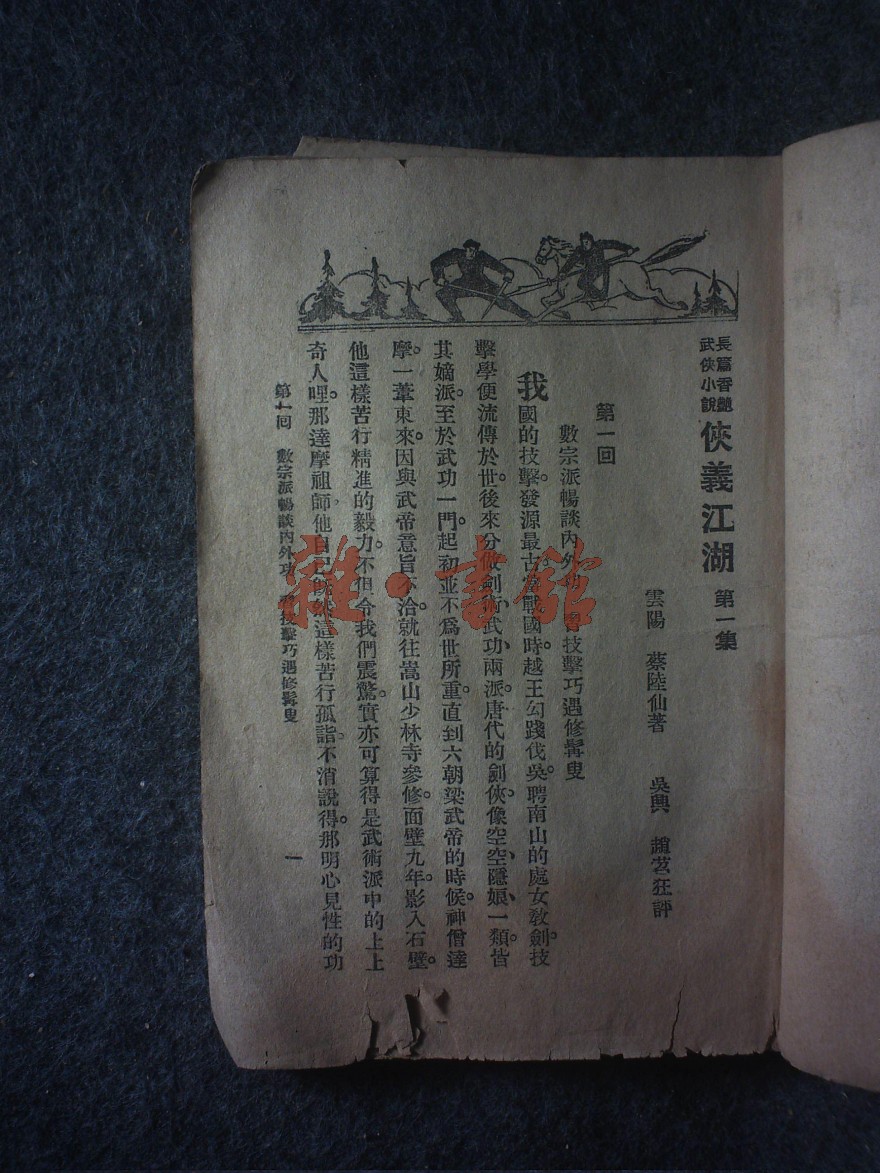 長篇香艷
武俠小說
俠義江湖 第一集
雲陽 蔡陸仙著 吳興 趙苕狂評
第一回
數宗派暢談內外功 技擊巧遇修髯叟
我國的技擊。發源最古。當戰國時。越王勾踐伐吳。聘南山的處女教劍。技
擊學便流傳於世。後來分做劍術、武功、兩派。唐代的劍俠。像空空、隱娘、一類。皆
其嫡派。至於武功一門。起初並不爲世所重。直到六朝梁武帝的時候。神僧達
摩。一葦東來。因與武帝意旨不洽。就往嵩山少林寺參修。面壁九年。影入石壁。
他這樣苦行精進的毅力。不但令我們震驚。實亦可算得是武術派中的上上
奇人哩。那達摩祖師他自己既然這樣苦行孤詣。不消說得。那明心見性的功
第一回 數宗派暢談內外功 技擊巧遇修髯叟
一
雜·書館